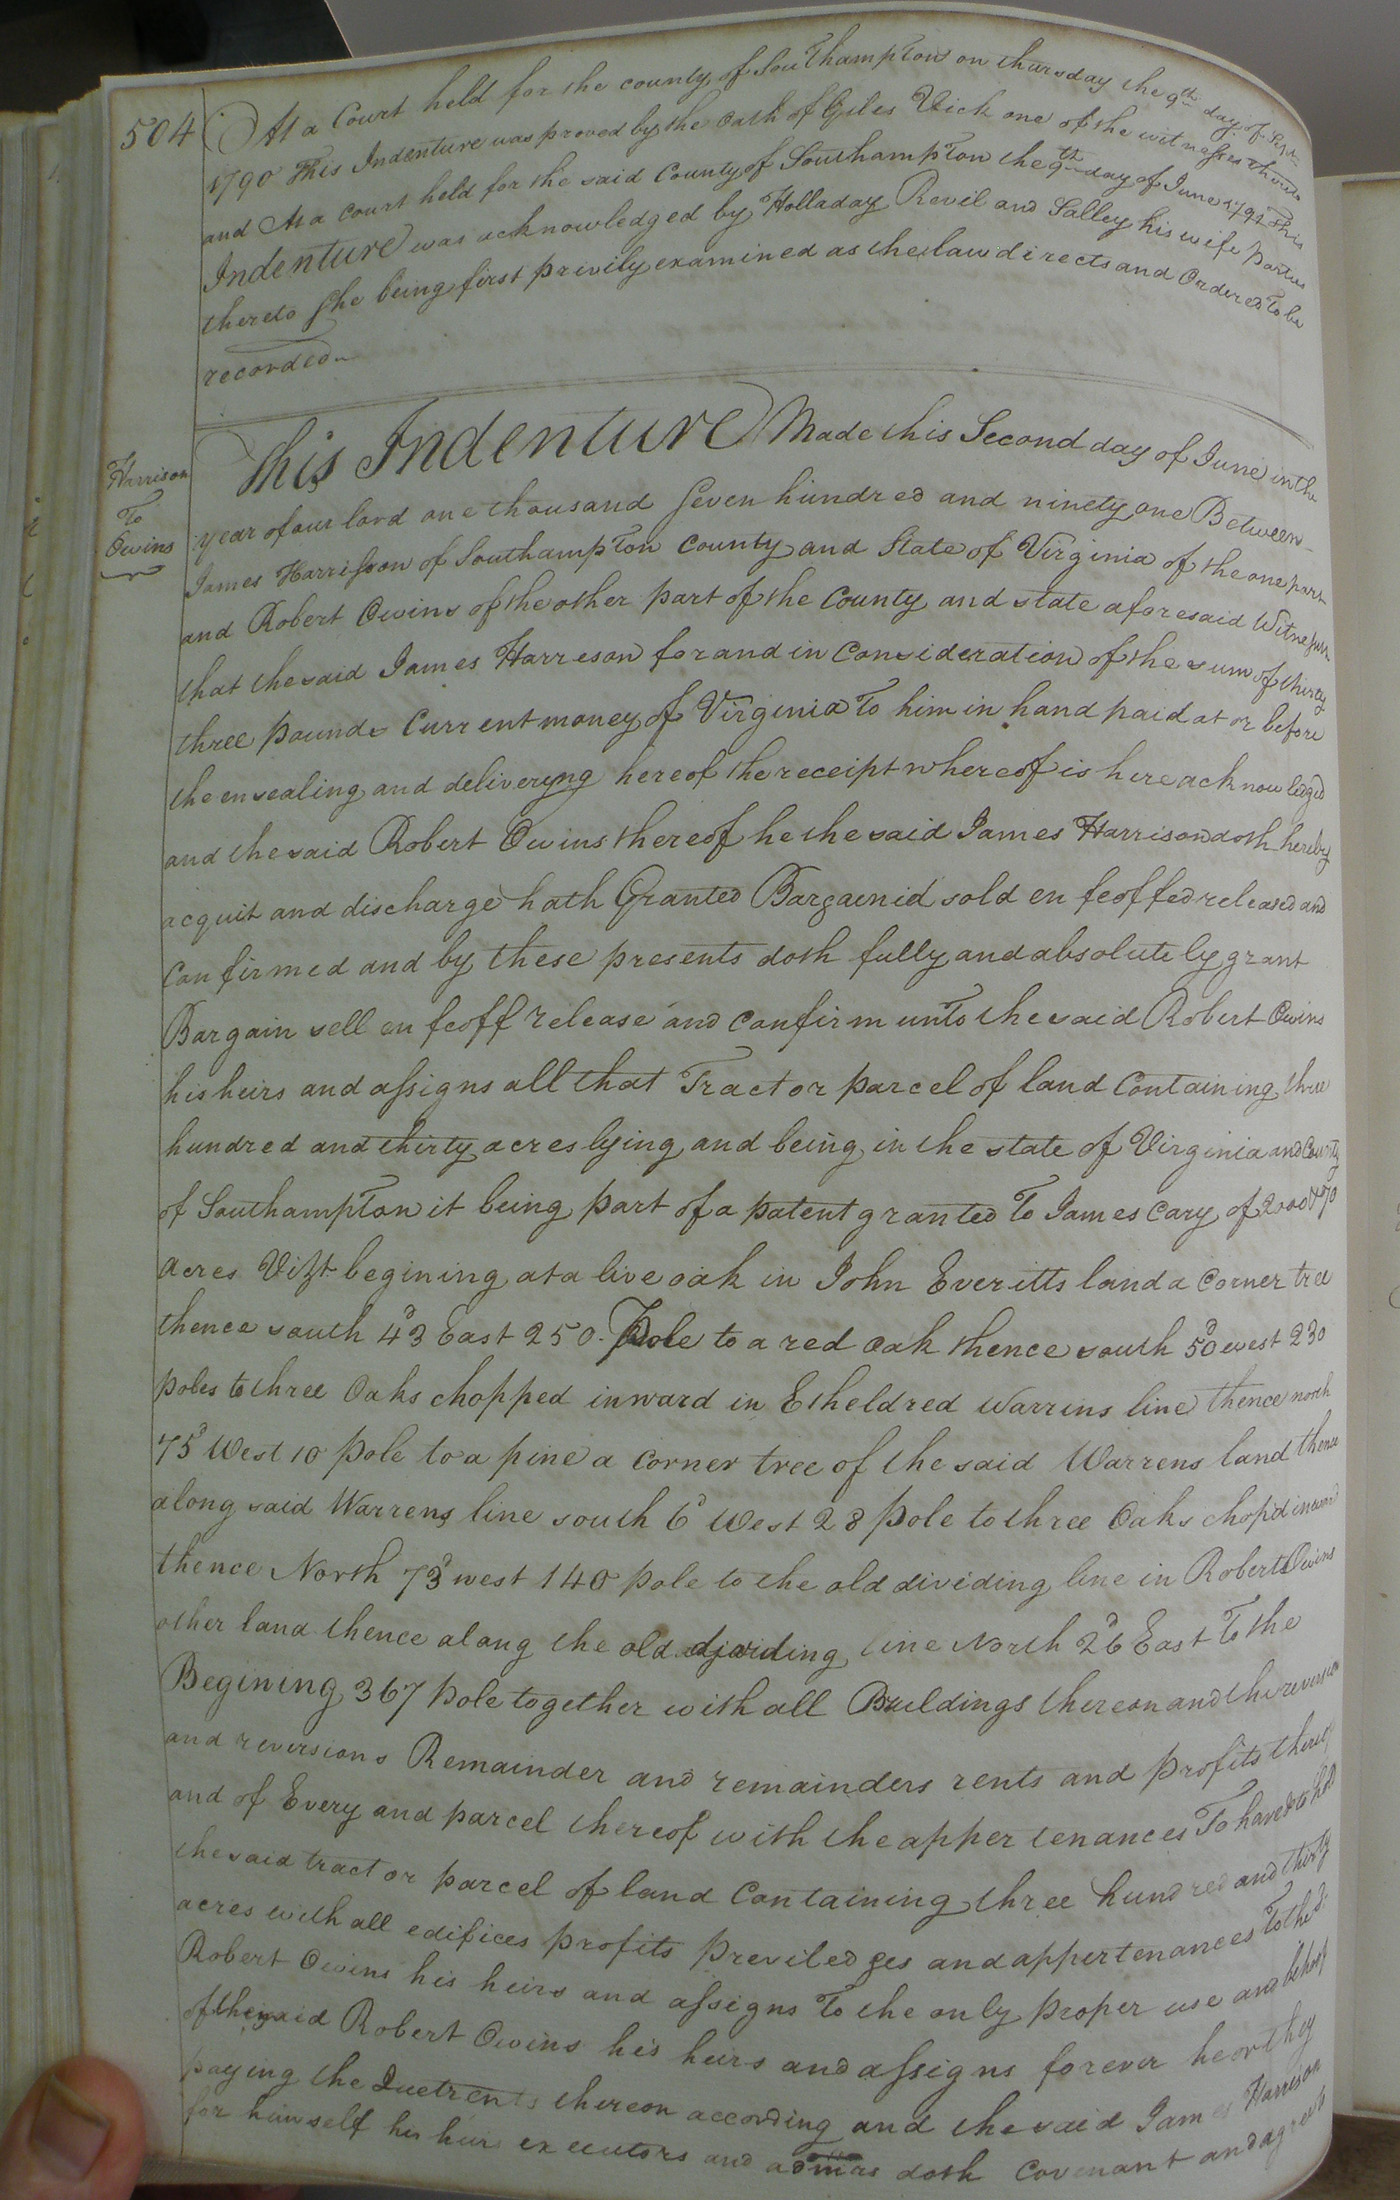 504
At a Court held for the county of Southampton on thursday the 9th day of Sept
1790 This Indenture was proved by the oath of Giles Vick one of the witnesses thereto
and At a court held for the said County of Southampton the 9th day of June 1791 This
Indenture was acknowledged by Holladay Revil and Salley his wife parties
thereto She being first privily examined as the law directs and Ordered To be
recorded
Harrison
To
Owins
This Indenture Made this Second day of June in the
year of our lord one thousand Seven hundred and ninety one Between
James Harrisson of Southampton County and State of Virginia of the one part
and Robert Owins of the other part of the County and state aforesaid Witnesseth
that the said James Harreson for and in Consideration of the sum of thirty
three pounds Current money of Virginia To him in hand paid at or before
the ensealing and deliveryng hereof the receipt whereof is here acknowledged
and the said Robert Owins thereof he the said James Harrison doth hereby
acquit and discharge hath Granted Bargainid sold en feoffed released and
Confirmed and by these presents doth fully and absolutely grant
Bargain sell en feoff release and Confirm unto the said Robert Owins
his heirs and assigns all that Tract or parcel of land Containing three
hundred and thirty acres lying and being in the state of Virginia and County
of Southampton it being part of a patent granted To James Cary of 2000 & 70
acres Vizt begining at a live oak in John Everitts land a Corner tree
thence south 43 East 250 Pole to a red oak thence south 50 west 230
poles to three Oaks chopped inward in Etheldred Warrins line thence north
75 West 10 pole to a pine a Corner tree of the said Warrens land thence
along said Warrens line south 6 West 28 pole to three Oaks chopd inward
thence North 73 west 140 pole to the old dividing line in Roberts Owins
other land thence along the old dividing line North 26 East To the
Begining 367 pole together with all Buildings thereon and the reversion
and reversions Remainder and remainders rents and profits thereof
and of Every and parcel thereof with the appertenances To have & to hold
the said tract or parcel of land Containing three hundred and thirty
acres with all edifices profits previledges and appertenances To the sd.
Robert Owins his heirs and assigns To the only proper use and behoof
of the said Robert Owins his heirs and assigns forever he or they
paying the Quetrents thereon according and the said James Harrison
for himself his heirs executors and admrs doth Covenant and agree